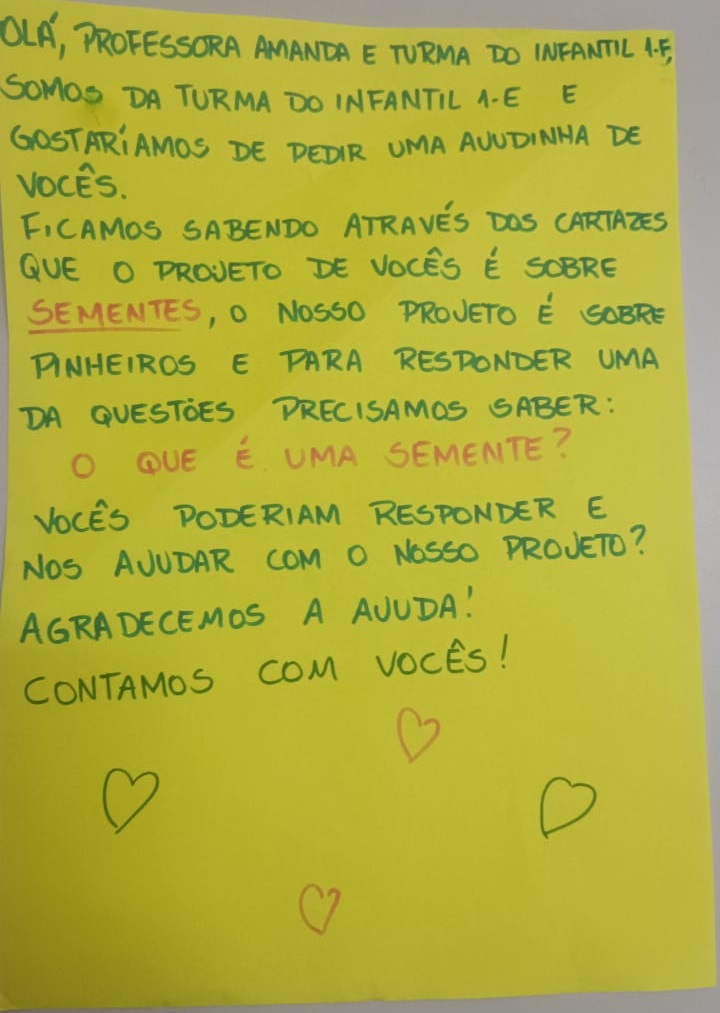 OLÁ, PROFESSORA AMANDA E TURMA DO INFANTIL 1-F,
SOMOS DA TURMA DO INFANTIL 1-E E
GOSTARÍAMOS DE PEDIR UMA AJUDINHA DE
VOCÊS.
FICAMOS SABENDO ATRAVÉS DOS CARTAZES
QUE O PROJETO DE VOCÊS É SOBRE
SEMENTES, O NOSSO PROJETO É SOBRE
PINHEIROS E PARA RESPONDER UMA
DA QUESTÕES PRECISAMOS SABER:
O QUE É UMA SEMENTE?
VOCÊS PODERIAM RESPONDER E
NOS AJUDAR COM O NOSSO PROJETO?
AGRADECEMOS A AJUDA!
CONTAMOS COM VOCÊS!